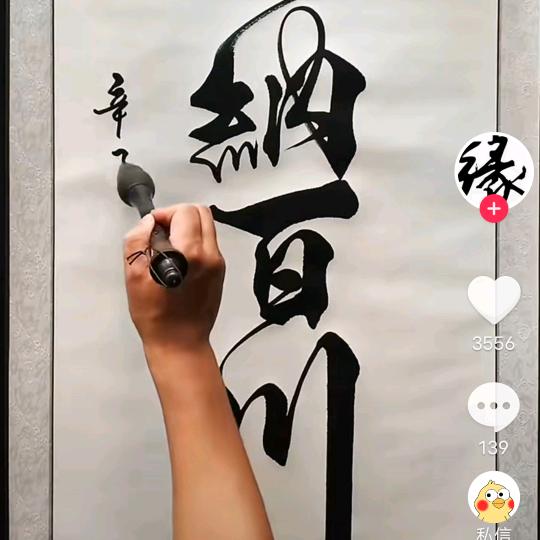 納百川
辛
緣
3556
139
私信